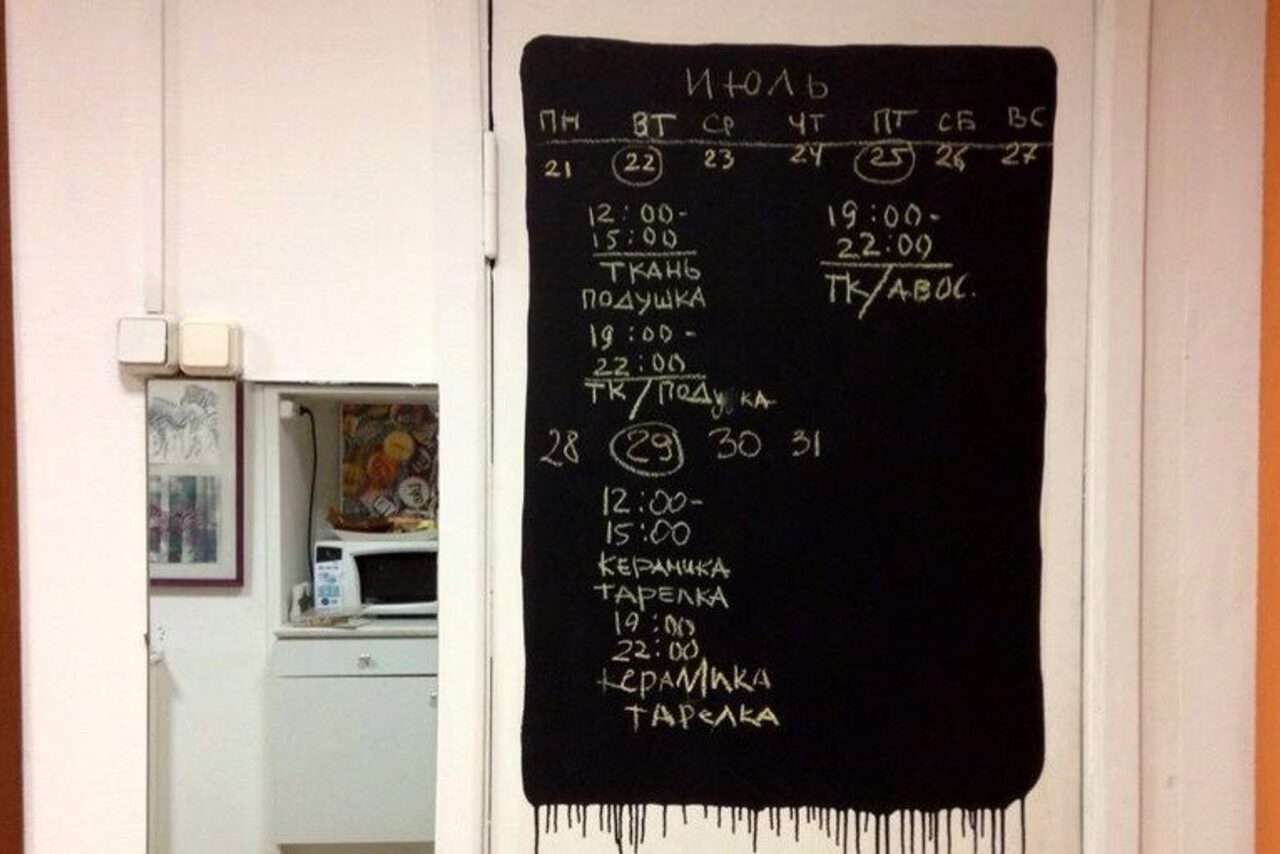 ИЮЛЬ
ПН ВТ СР ЧТ ПТ СБ ВС
21 22 23 24 25 26 27
12:00-
15:00
ТКАНЬ
ПОДУШКА
19:00-
22:00
ТК/ПОДУ КА
19:00-
22:00
ТК/АВОС.
28 29 30 31
12:00-
15:00
КЕРАМИКА
ТАРЕЛКА
19:00
22:00
КЕРАМИКА
ТАРЕЛКА